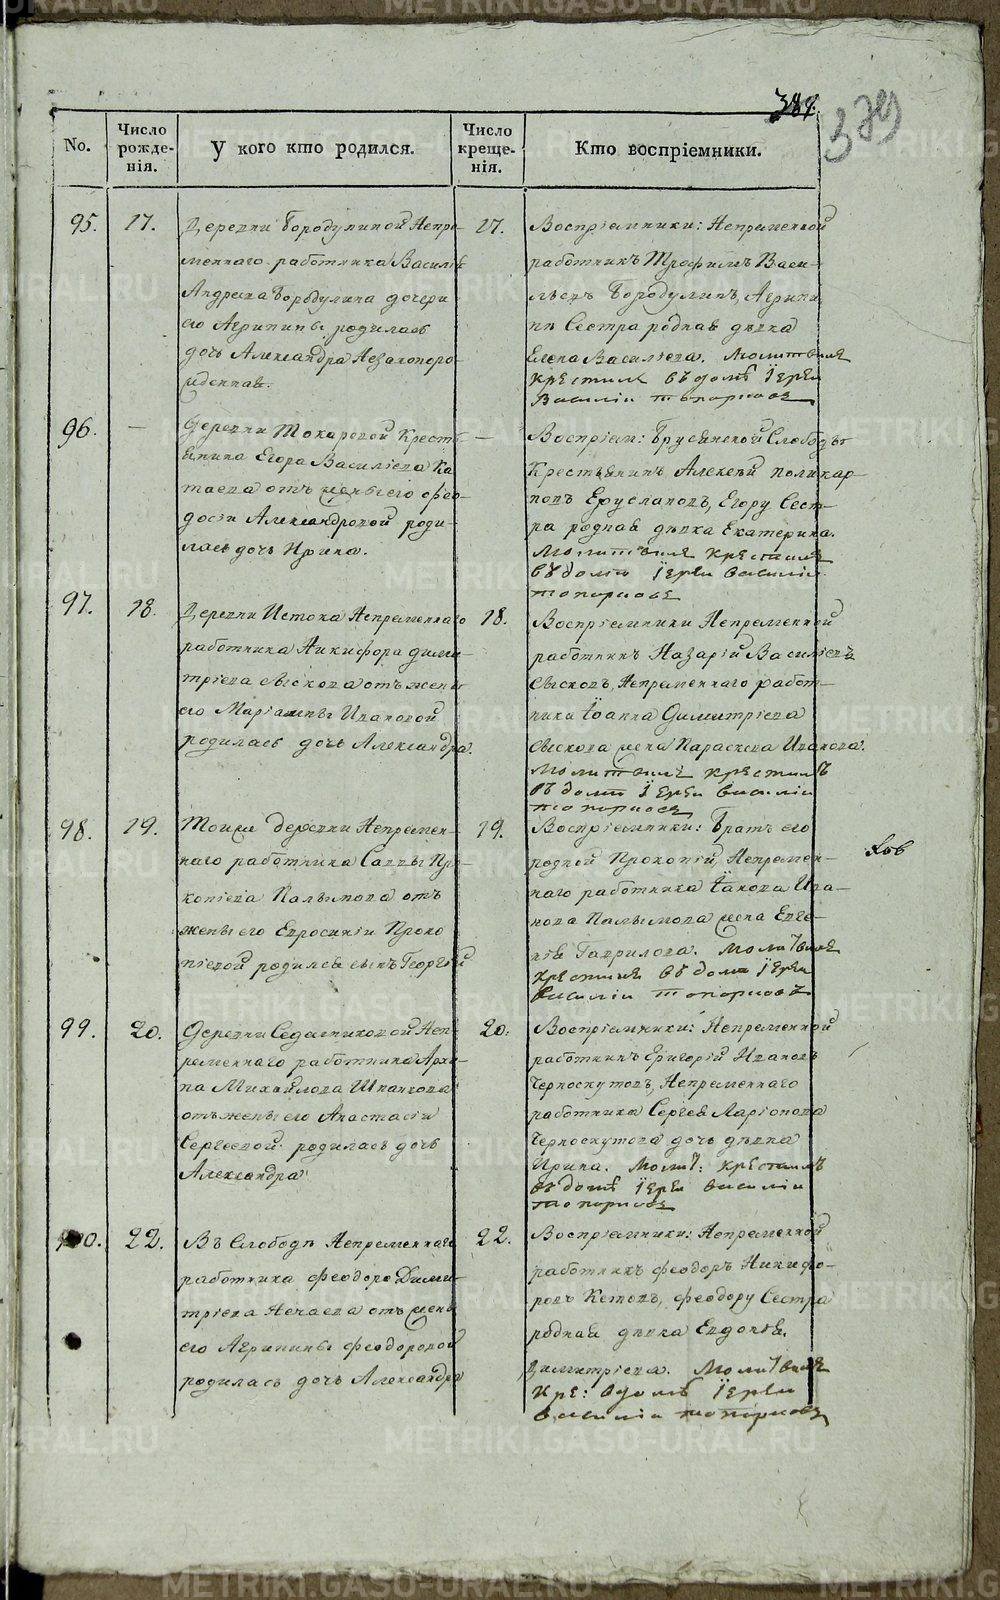 379
No.
Число рожде-нія.
У кого кто родился.
Число креще-нія.
Кто воспріемники.
95.
17.
Деревни Бородулиной Непре-
меннаго работника Василія
Андреева Бородулина дочери
его Агрипины родилась
дочь Александра Незаконоро-
жденная.
17.
Воспріемники: Непременной
работникъ Трофимъ Васи-
льевъ Бородулинъ, Агрипи-
ны Сестра родная девка
Елена Василіева. Молитвилъ
крестилъ въ доме Іерей
Василіи Топорковъ
96.
—
Деревни Токаревой Кресть-
янина Егора Василіева Ка-
таева отъ жены его Фео-
досіи Александровой роди-
лась дочь Ирина.
—
Воспріем: Брусянской Слободы
Крестьянинъ Алексей Поликар-
повъ Еруслановъ, Егору Сест-
ра родная девка Екатерина.
Молитвилъ крестилъ
въ доме Іерей Василіи
Топорковъ
97.
18.
Деревни Истока Непременнаго
работника Никифора Дими-
тріева Сыскова отъ жены
его Маріамны Ивановой
родилась дочь Александра.
18.
Воспріемники Непременной
работникъ Назарій Василіевъ
Сысковъ, Непременнаго работ-
ника Іоанна Димитріева
Сыскова жена Параскева Иванова.
Молитвилъ крестилъ
въ доме Іерей Василіи
Топорковъ
98.
19.
Тойже деревни Непремен-
наго работника Саввы Про-
копіева Палымова отъ
жены его Евросиніи Проко-
піевой родился сынъ Георгій
19.
Воспріемники: Братъ его
родной Прокопій, Непремен-
наго работника Іакова Ива-
нова Палымова жена Евге-
нія Гаврилова. Молитвилъ
крестилъ въ доме Іерей
Василіи Топорковъ
99.
20.
Деревни Седельниковой Неп-
ременнаго работника Архи-
па Михайлова
отъ жены его Анастасіи
Сергеевой родилась дочь
Александра
20.
Воспріемники: Непременной
работникъ Григорій Ивановъ
Черноскутовъ, Непременнаго
работника Сергея Ларіонова
Черноскутова дочь девка
Ирина. Молит: крестилъ
въ доме Іерей Василіи
Топорковъ
100.
22.
Въ Слободе Непременнаго
работника Феодора Дими-
тріева Нечаева отъ жены
его Агрипины Феодоровой
родилась дочь Александра
22.
Воспріемники: Непременной
работникъ Феодоръ Никифо-
ровъ Кетовъ, Феодору Сестра
родная девка Евдокія
Димитріева. Молитвилъ
Кре: в доме Іерей
Василіи Топорковъ
METRIKI.GASO-URAL.RU